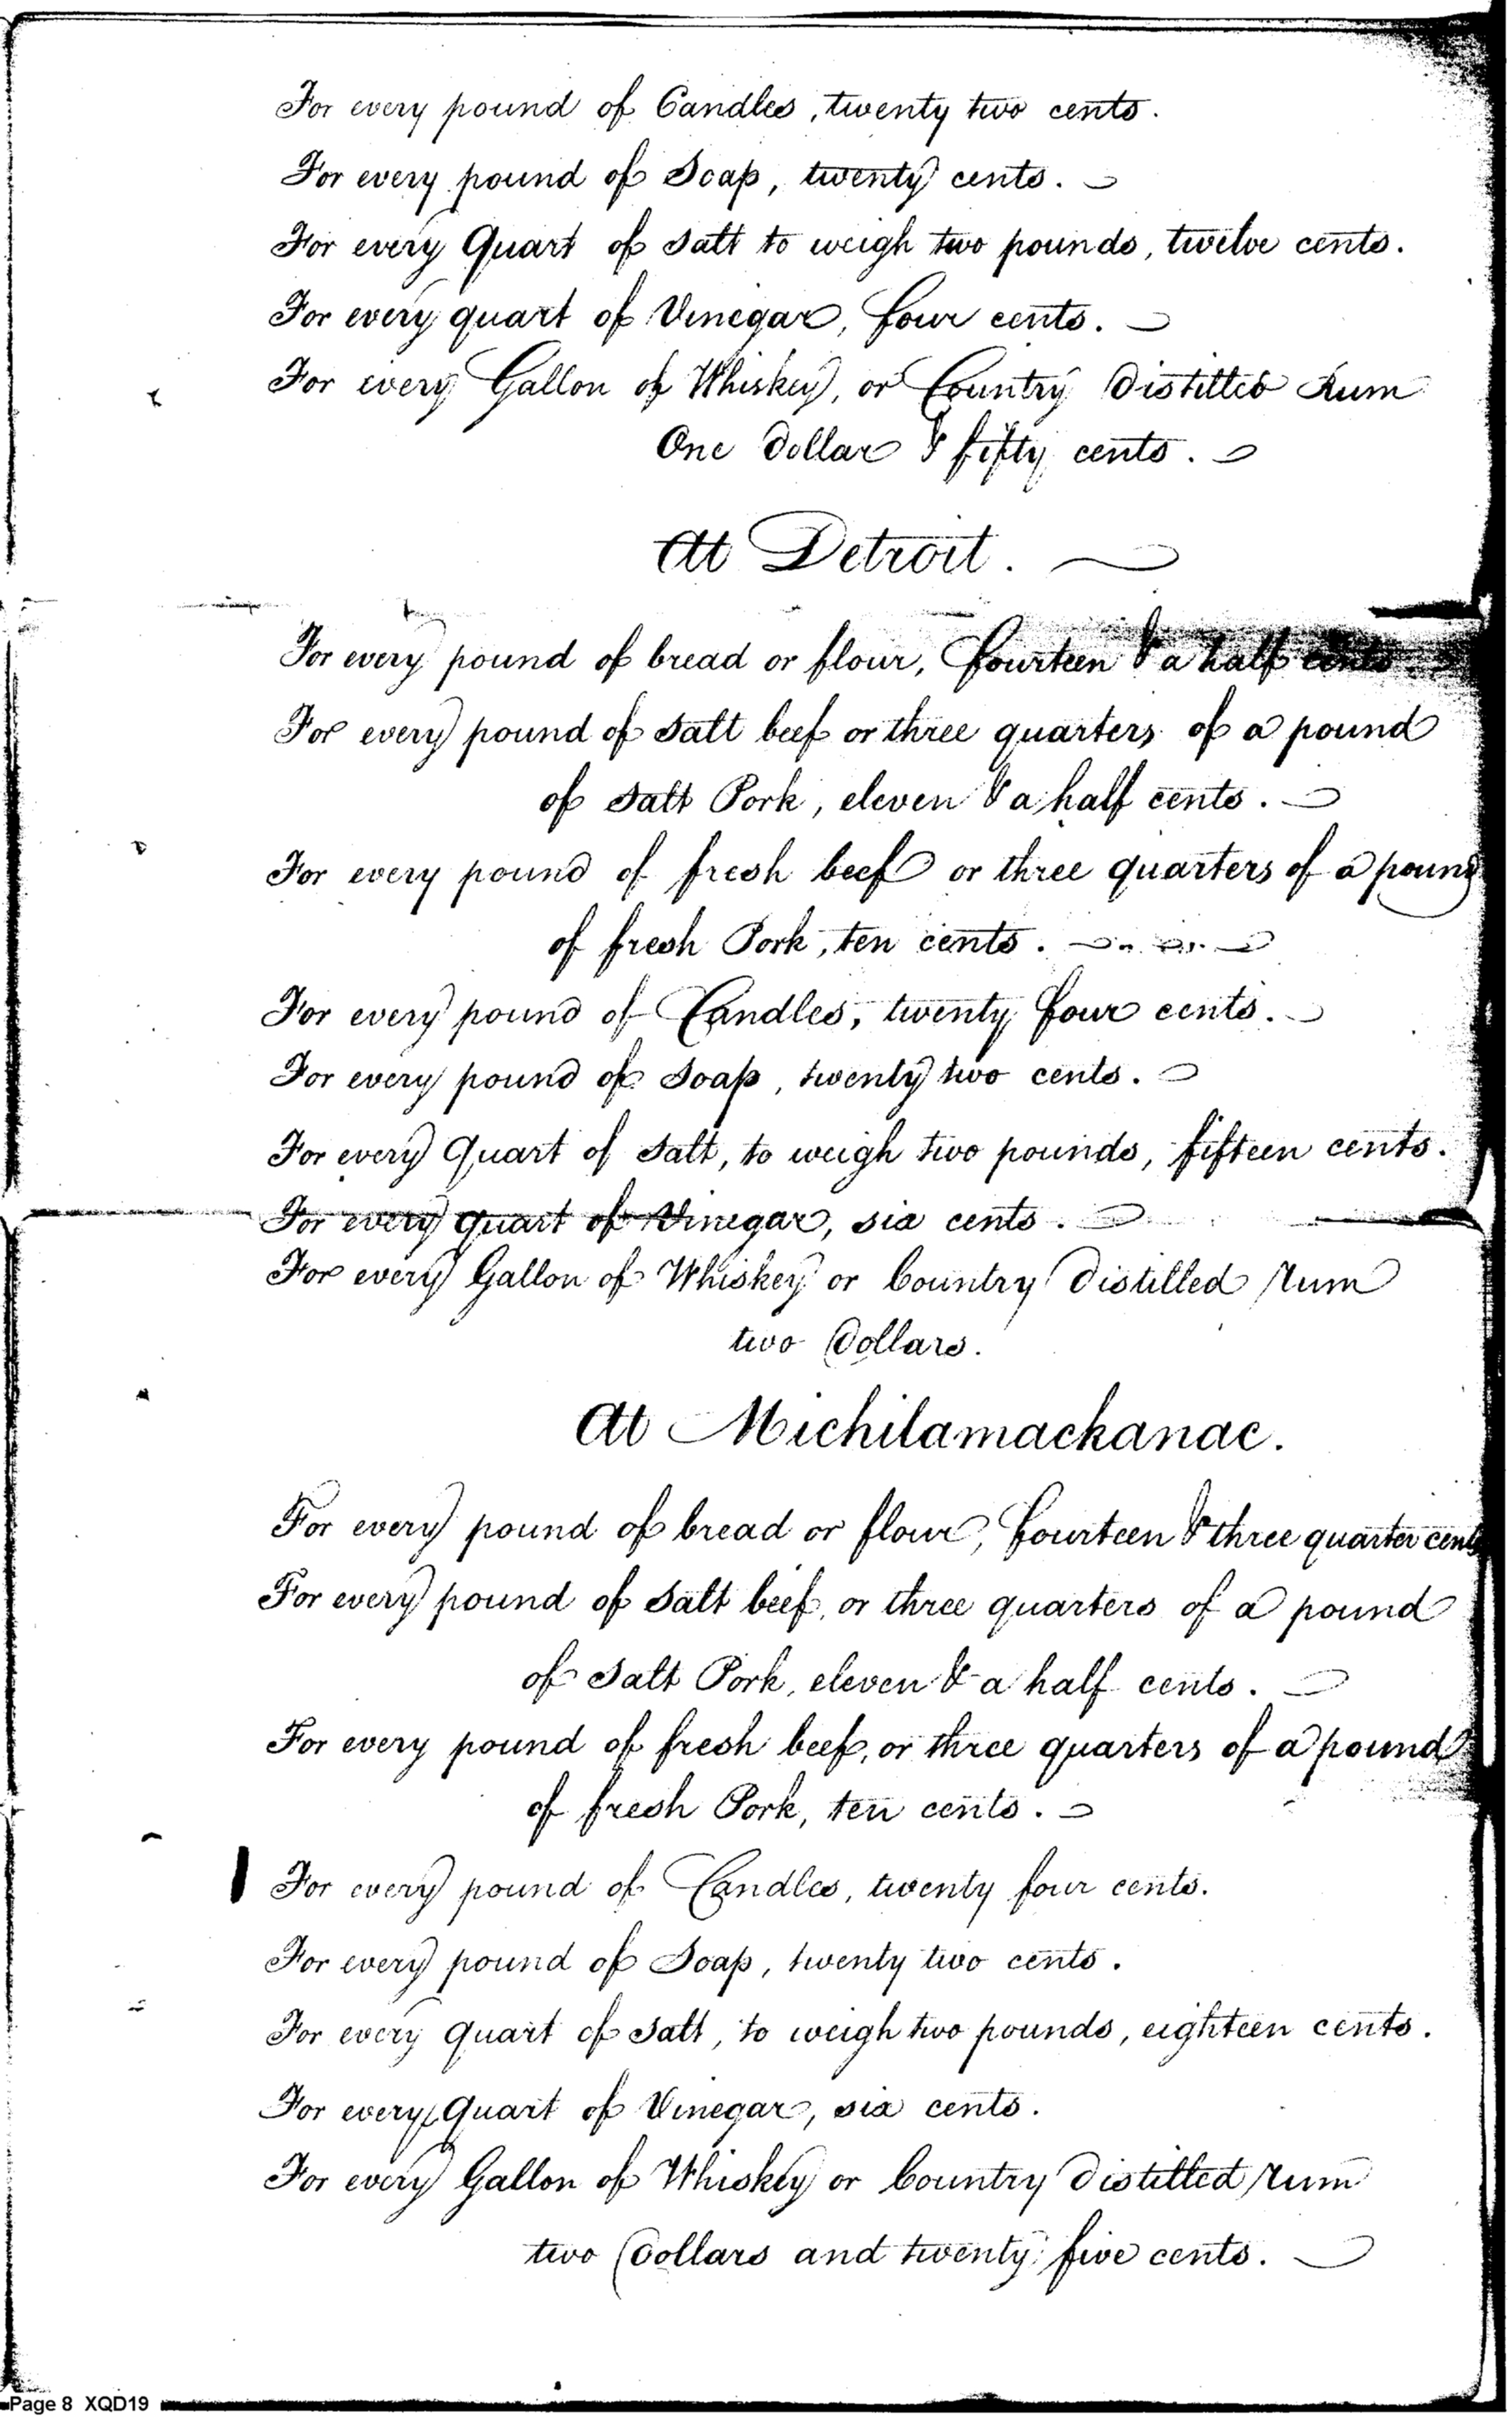 For every pound of Candles, twenty two cents.
For every pound of Soap, twenty cents.
For every Quart of Salt to weigh two pounds, twelve cents.
For every quart of Vinegar, four cents.
For every Gallon of Whiskey, or Country Distilled Rum
One Dollar & fifty cents.
At Detroit.
For every pound of bread or flour, fourteen & a half cents.
For every pound of Salt beef or three quarters of a pound
of Salt Pork, eleven & a half cents.
For every pound of fresh beef or three quarters of a pound
of fresh Pork, ten cents.
For every pound of Candles, twenty four cents.
For every pound of Soap, twenty two cents.
For every Quart of Salt, to weigh two pounds, fifteen cents.
For every quart of Vinegar, six cents.
For every Gallon of Whiskey or Country Distilled Rum
two Dollars.
At Michilamackanac.
For every pound of bread or flour, fourteen & three quarter cents
For every pound of Salt beef, or three quarters of a pound
of Salt Pork, eleven & a half cents.
For every pound of fresh beef, or three quarters of a pound
of fresh Pork, ten cents.
For every pound of Candles, twenty four cents.
For every pound of Soap, twenty two cents.
For every Quart of Salt, to weigh two pounds, eighteen cents.
For every Quart of Vinegar, six cents.
For every Gallon of Whiskey or Country Distilled Rum
two Dollars and twenty five cents.
Page 8 XQD19